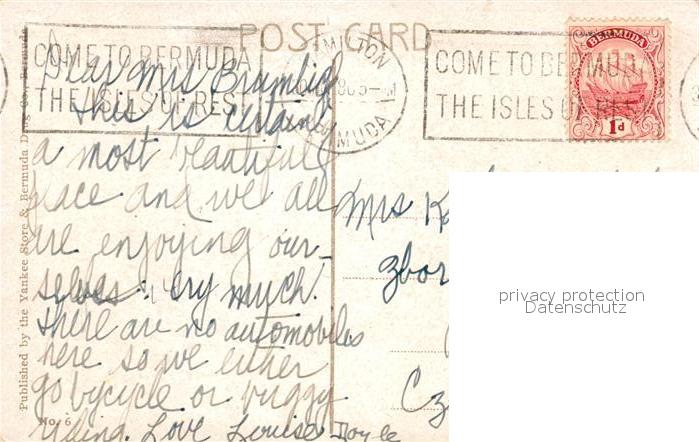 POST CARD
COME TO BERMUDA
THE ISLES OF REST
HAMILTON
BERMUDA
COME TO BERMUDA
THE ISLES OF REST
BERMUDA
1d
Dear Mrs
This is certainly
a most beautiful
place and we all
are enjoying our-
selves very much.
There are no automobiles
here so we either
go bycycle or buggy
riding. Love Louise Doyle
Mrs
Published by the Yankee Store & Bermuda Drug Co., Bermuda
No. 6
privacy protection
Datenschutz